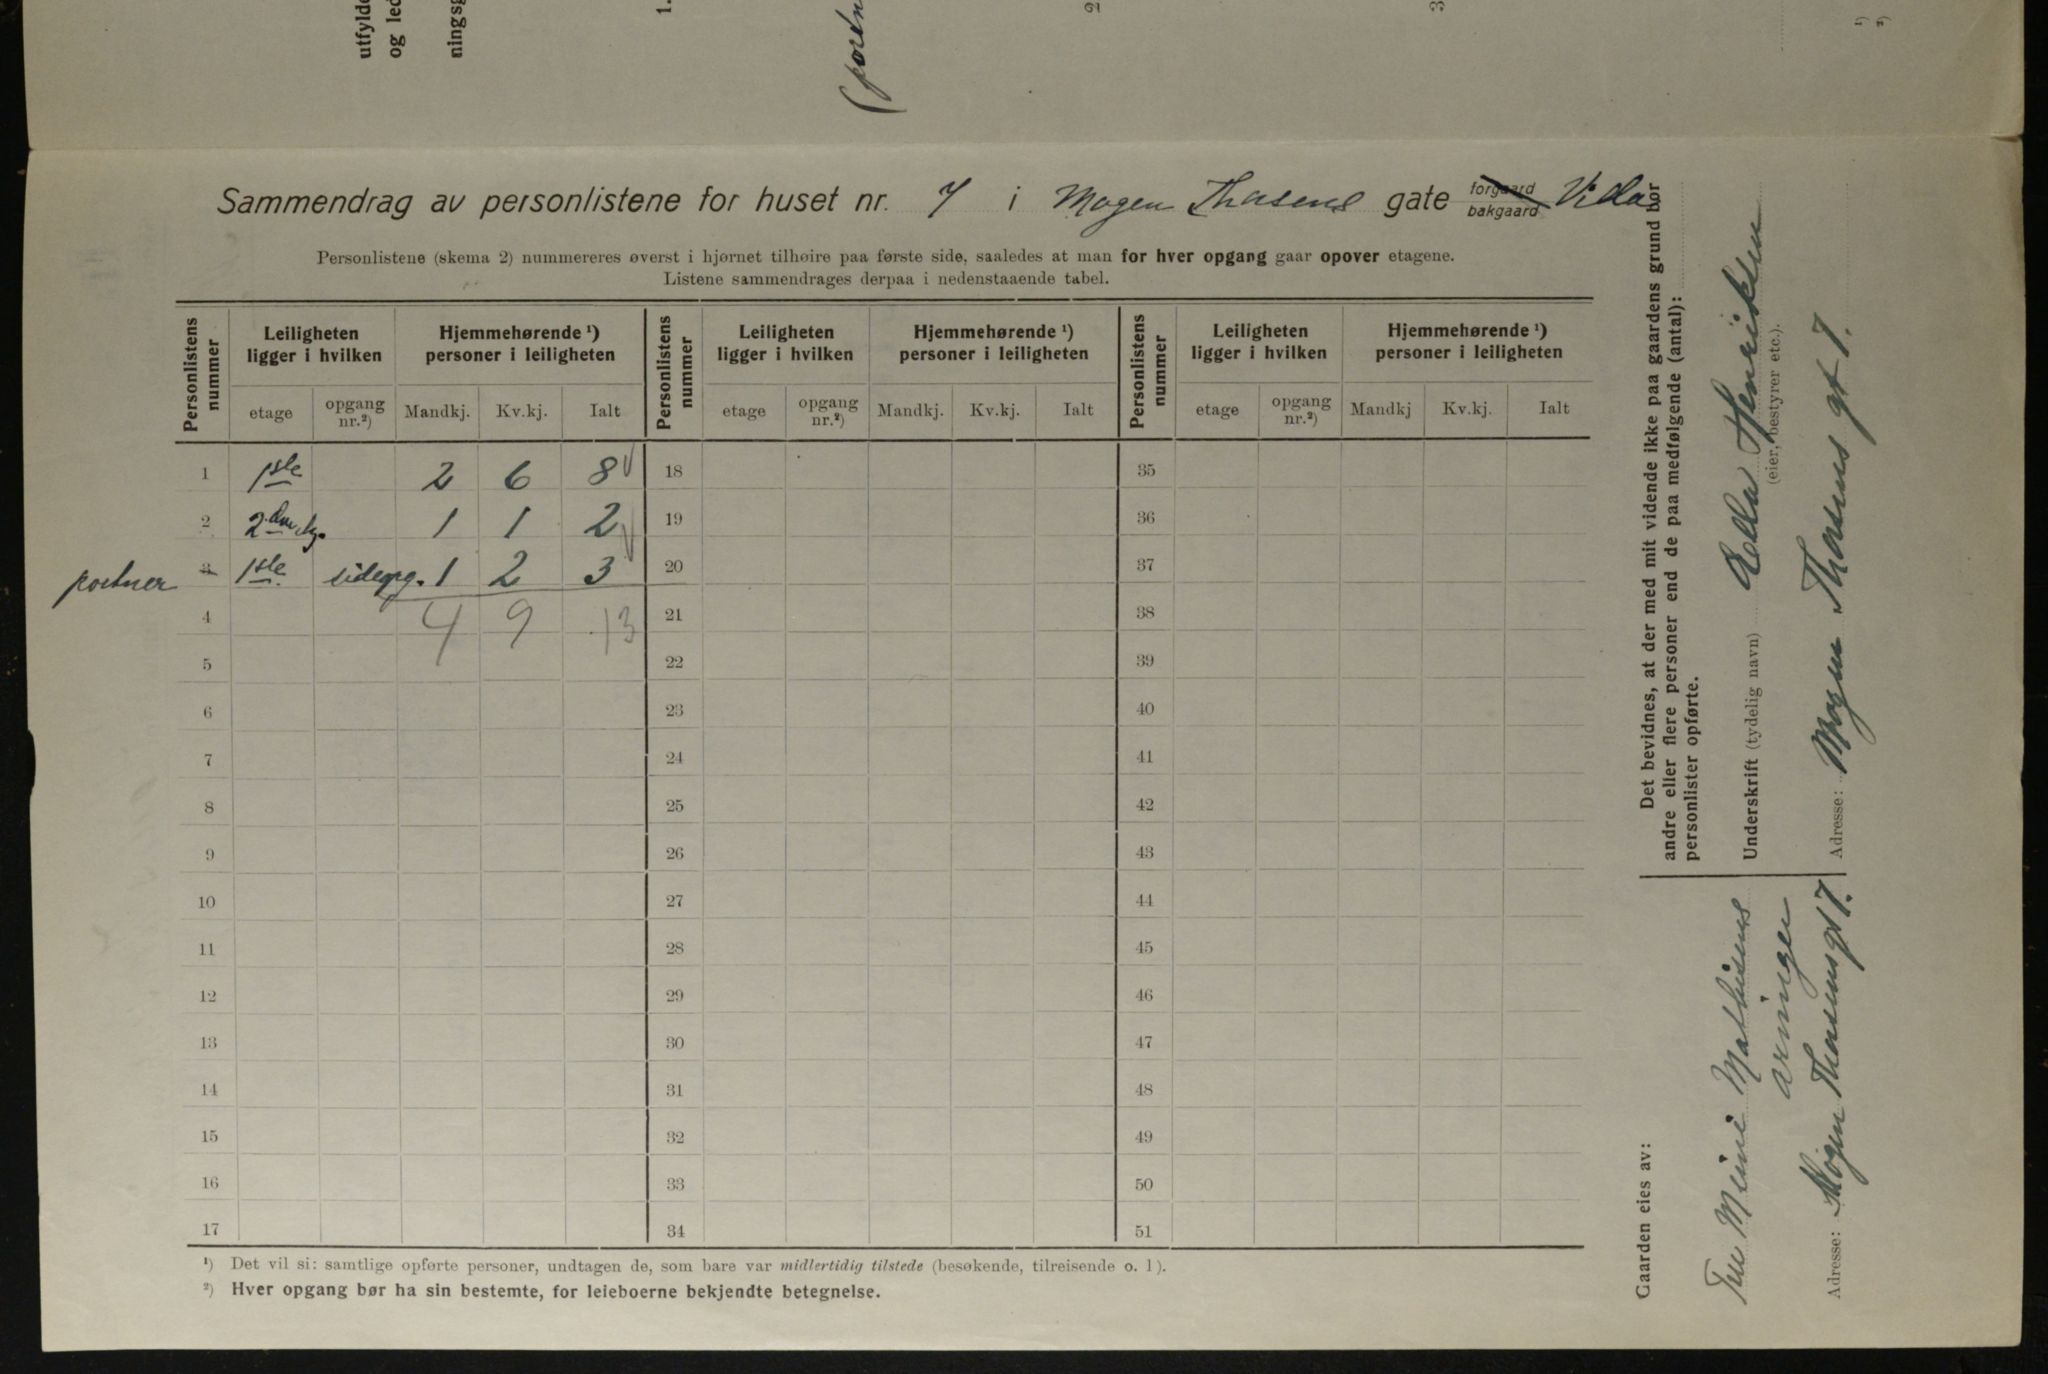 utfylde
og led
ningsg
1.
(portn
2
3
¹)
²)
Sammendrag av personlistene for huset nr. 7 i Mogen Thorsens gate forgaard bakgaard Villa
Personlistene (skema 2) nummereres øverst i hjørnet tilhøire paa første side, saaledes at man for hver opgang gaar opover etagene.
Listene sammendrages derpaa i nedenstaaende tabel.
Personlistens nummer | Leiligheten ligger i hvilken | Hjemmehørende ¹) personer i leiligheten | Personlistens nummer | Leiligheten ligger i hvilken | Hjemmehørende ¹) personer i leiligheten | Personlistens nummer | Leiligheten ligger i hvilken | Hjemmehørende ¹) personer i leiligheten
etage | opgang nr.²) | Mandkj. | Kv.kj. | Ialt | etage | opgang nr.²) | Mandkj. | Kv.kj. | Ialt | etage | opgang nr.²) | Mandkj | Kv.kj. | Ialt
1 1ste 2 6 8 18 35
2 1 1 2 19 36
portner 3 1ste sideopg. 1 2 3 20 37
4 4 9 13 21 38
5 22 39
6 23 40
7 24 41
8 25 42
9 26 43
10 27 44
11 28 45
12 29 46
13 30 47
14 31 48
15 32 49
16 33 50
17 34 51
¹) Det vil si: samtlige opførte personer, undtagen de, som bare var midlertidig tilstede (besøkende, tilreisende o. l).
²) Hver opgang bør ha sin bestemte, for leieboerne bekjendte betegnelse.
Det bevidnes, at der med mit vidende ikke paa gaardens grund bor
andre eller flere personer end de paa medfølgende (antal):
personlister opførte.
Underskrift (tydelig navn) Henriksen
(eier, bestyrer etc.).
Adresse: Mogen Thorsens gt 7.
Gaarden eies av: Mathisens
arvinger
Adresse: Mogen Thorsens gt 7.